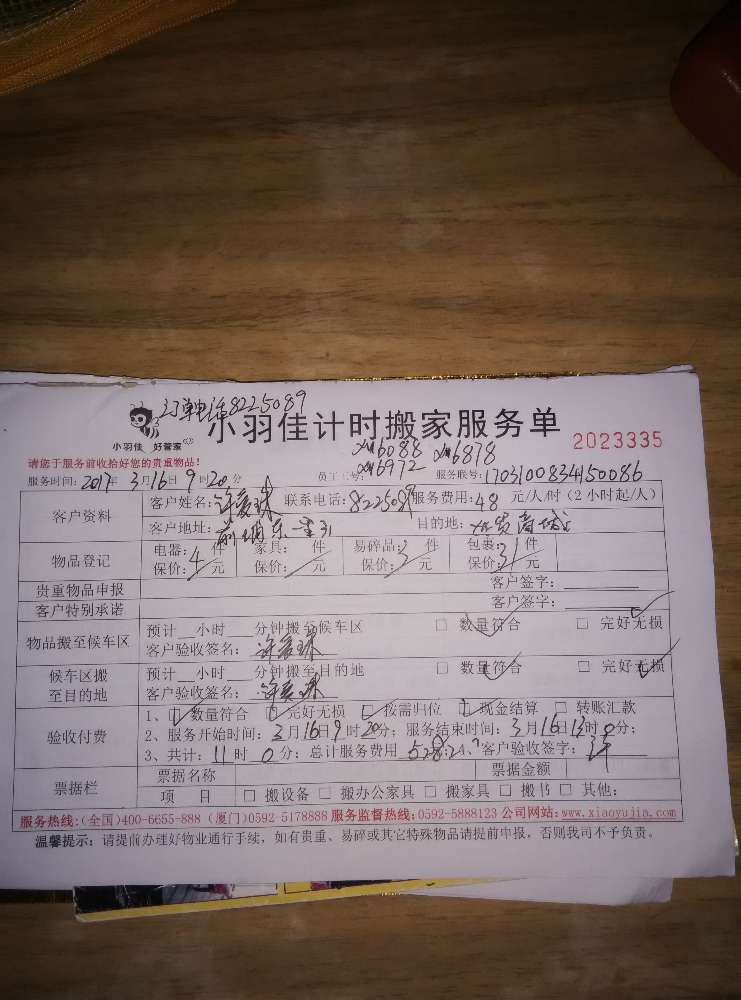 订单电话8225089
小羽佳 好管家
小羽佳计时搬家服务单
2023335
请您于服务前收拾好您的贵重物品!
xm6088 xm6878
服务时间: 2017年 3月16日 9时20分 员工工号: xm6972 服务联号: 1703100834150086
客户资料
客户姓名: 许爱珠 联系电话: 8225089 服务费用: 48 元/人/时 (2小时起/人)
客户地址: 目的地:
物品登记
电器: 4 件 家具: 件 易碎品: 2 件 包裹: 31 件
保价: 元 保价: 元 保价: 元 保价: 元
贵重物品申报 客户签字:
客户特别承诺 客户签字:
物品搬至候车区
预计__小时___分钟搬至候车区 □ 数量符合 □ 完好无损
客户验收签名: 许爱珠
候车区搬至目的地
预计__小时___分钟搬至目的地 □ 数量符合 □ 完好无损
客户验收签名: 许爱珠
验收付费
1、□ 数量符合 □ 完好无损 □ 按需归位 □ 现金结算 □ 转账汇款
2、服务开始时间: 3月16日9时20分; 服务结束时间: 3月16日13时0分;
3、共计: 11时0分; 总计服务费用 528元 客户验收签字: 许
票据栏
票据名称 票据金额
项 目 □ 搬设备 □ 搬办公家具 □ 搬家具 □ 搬书 □ 其他:
服务热线:(全国)400-6655-888 (厦门)0592-5178888 服务监督热线:0592-5888123 公司网站:www.xiaoyujia.com
温馨提示: 请提前办理好物业通行手续, 如有贵重、易碎或其它特殊物品请提前申报, 否则我司不予负责。